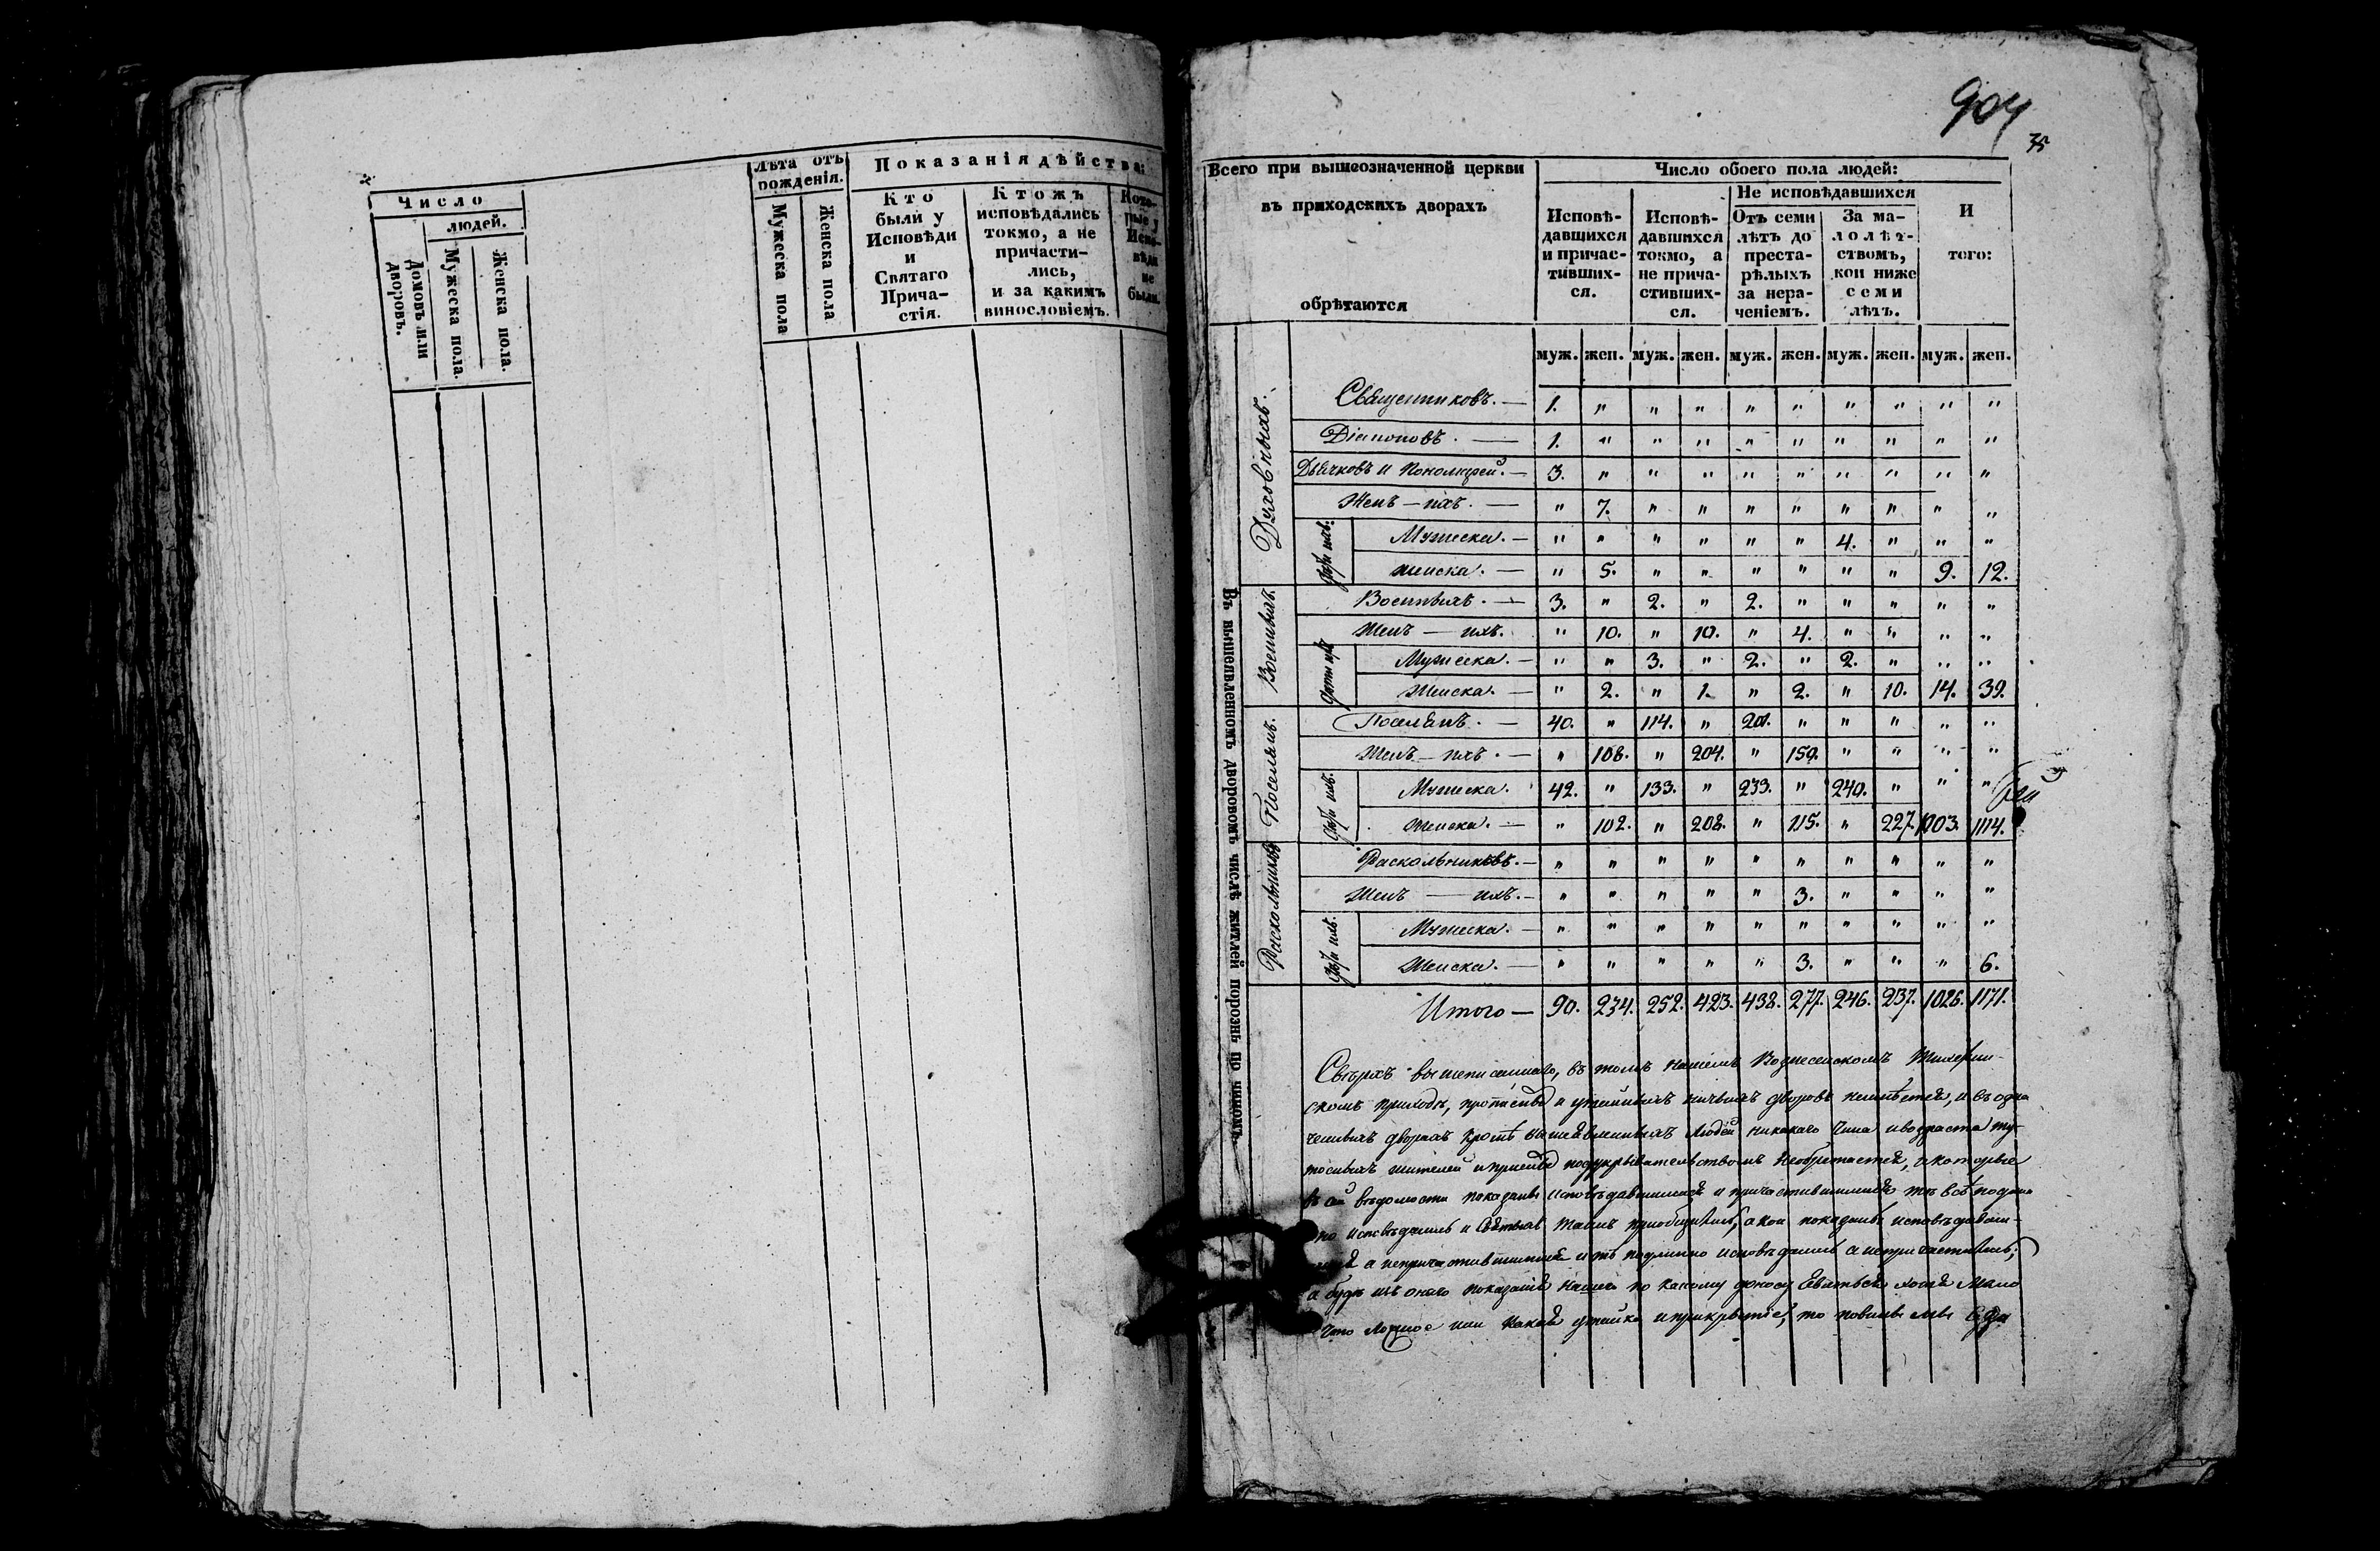 Число
людей.
Домовъ или дворовъ.
Мужеска пола.
Женска пола.
Лѣта отъ рожденія.
Мужеска пола
Женска пола
Показанія дѣйства:
Кто были у Исповѣди и Святаго Прича- стія.
Ктожъ исповѣдались токмо, а не причасти- лись, и за какимъ винословіемъ.
Кото- рые у Испо- вѣди не были.
904
35
Всего при вышеозначенной церкви
въ приходскихъ дворахъ
обрѣтаются
Число обоего пола людей:
Исповѣ- давшихся и причас- тивших- ся.
Исповѣ- давшихся токмо, а не прича- стивших- ся.
Не исповѣдавшихся
Отъ семи лѣтъ до преста- рѣлыхъ за нера- ченіемъ.
За ма- лолѣт- ствомъ, кои ниже семи лѣтъ.
И того:
муж. жен. муж. жен. муж. жен. муж. жен. муж. жен.
Въ вышеявленномъ дворовомъ числѣ жителей порознь по чиномъ.
Духовныхъ.
Священниковъ. — 1. " " " " " " " " "
Діаконовъ. — 1. " " " " " " " " "
Дьячковъ и Пономарей. — 3. " " " " " " " " "
Женъ — ихъ. — " 7. " " " " " " " "
Дѣти ихъ.
Мужеска. — " " " " " " 4. " " "
женска. — " 5. " " " " " " 9. 12.
Военныхъ.
Военныхъ. — 3. " 2. " 2. " " " " "
Женъ — ихъ. " 10. " 10. " 4. " " " "
Дѣти ихъ
Мужеска. — " " 3. " 2. " 2. " " "
Женска. — " 2. " 1. " 2. " 10. 14. 39.
Поселянъ.
Поселянъ. — 40. " 114. " 201. " " " " "
Женъ — ихъ. — " 108. " 204. " 150. " " " "
Дѣти ихъ.
Мужеска. 42. " 133. " 233. " 240. " " "
Женска. — " 102. " 208. " 115. " 227. 1003. 1114.
Раскольниковъ
Раскольниковъ. — " " " " " " " " " "
Женъ — ихъ. — " " " " " 3. " " " "
Дѣти ихъ.
Мужеска. — " " " " " " " " " "
Женска. — " " " " " 3. " " " 6.
Итого — 90. 234. 252. 423. 438. 277. 246. 237. 1026. 1171.
Сверхъ вышеписаннаго, въ томъ нашемъ Вознесенскомъ
скомъ приходѣ, прописныхъ и утаенныхъ ничьихъ дворовъ неимѣется, и въ озна
ченныхъ дворахъ кромѣ вышеявленныхъ людей никакого чина и возраста ту-
тошныхъ жителей и пришлыхъ подукрывательствомъ необрѣтается, и которые
въ сей вѣдомости показаны исповѣдавшимися и причастившимися тѣ всѣ подлин
но исповѣдались и Святыхъ Таинъ приобщились, а кои показаны исповѣдавши-
мися а непричастившимися и тѣ подлинно исповѣдались а непричастились;
а буде изъ онаго показанія нашего по какому доносу явиться хотя мало
что ложное или какая утайка и прикрытіе, то повинны мы суда